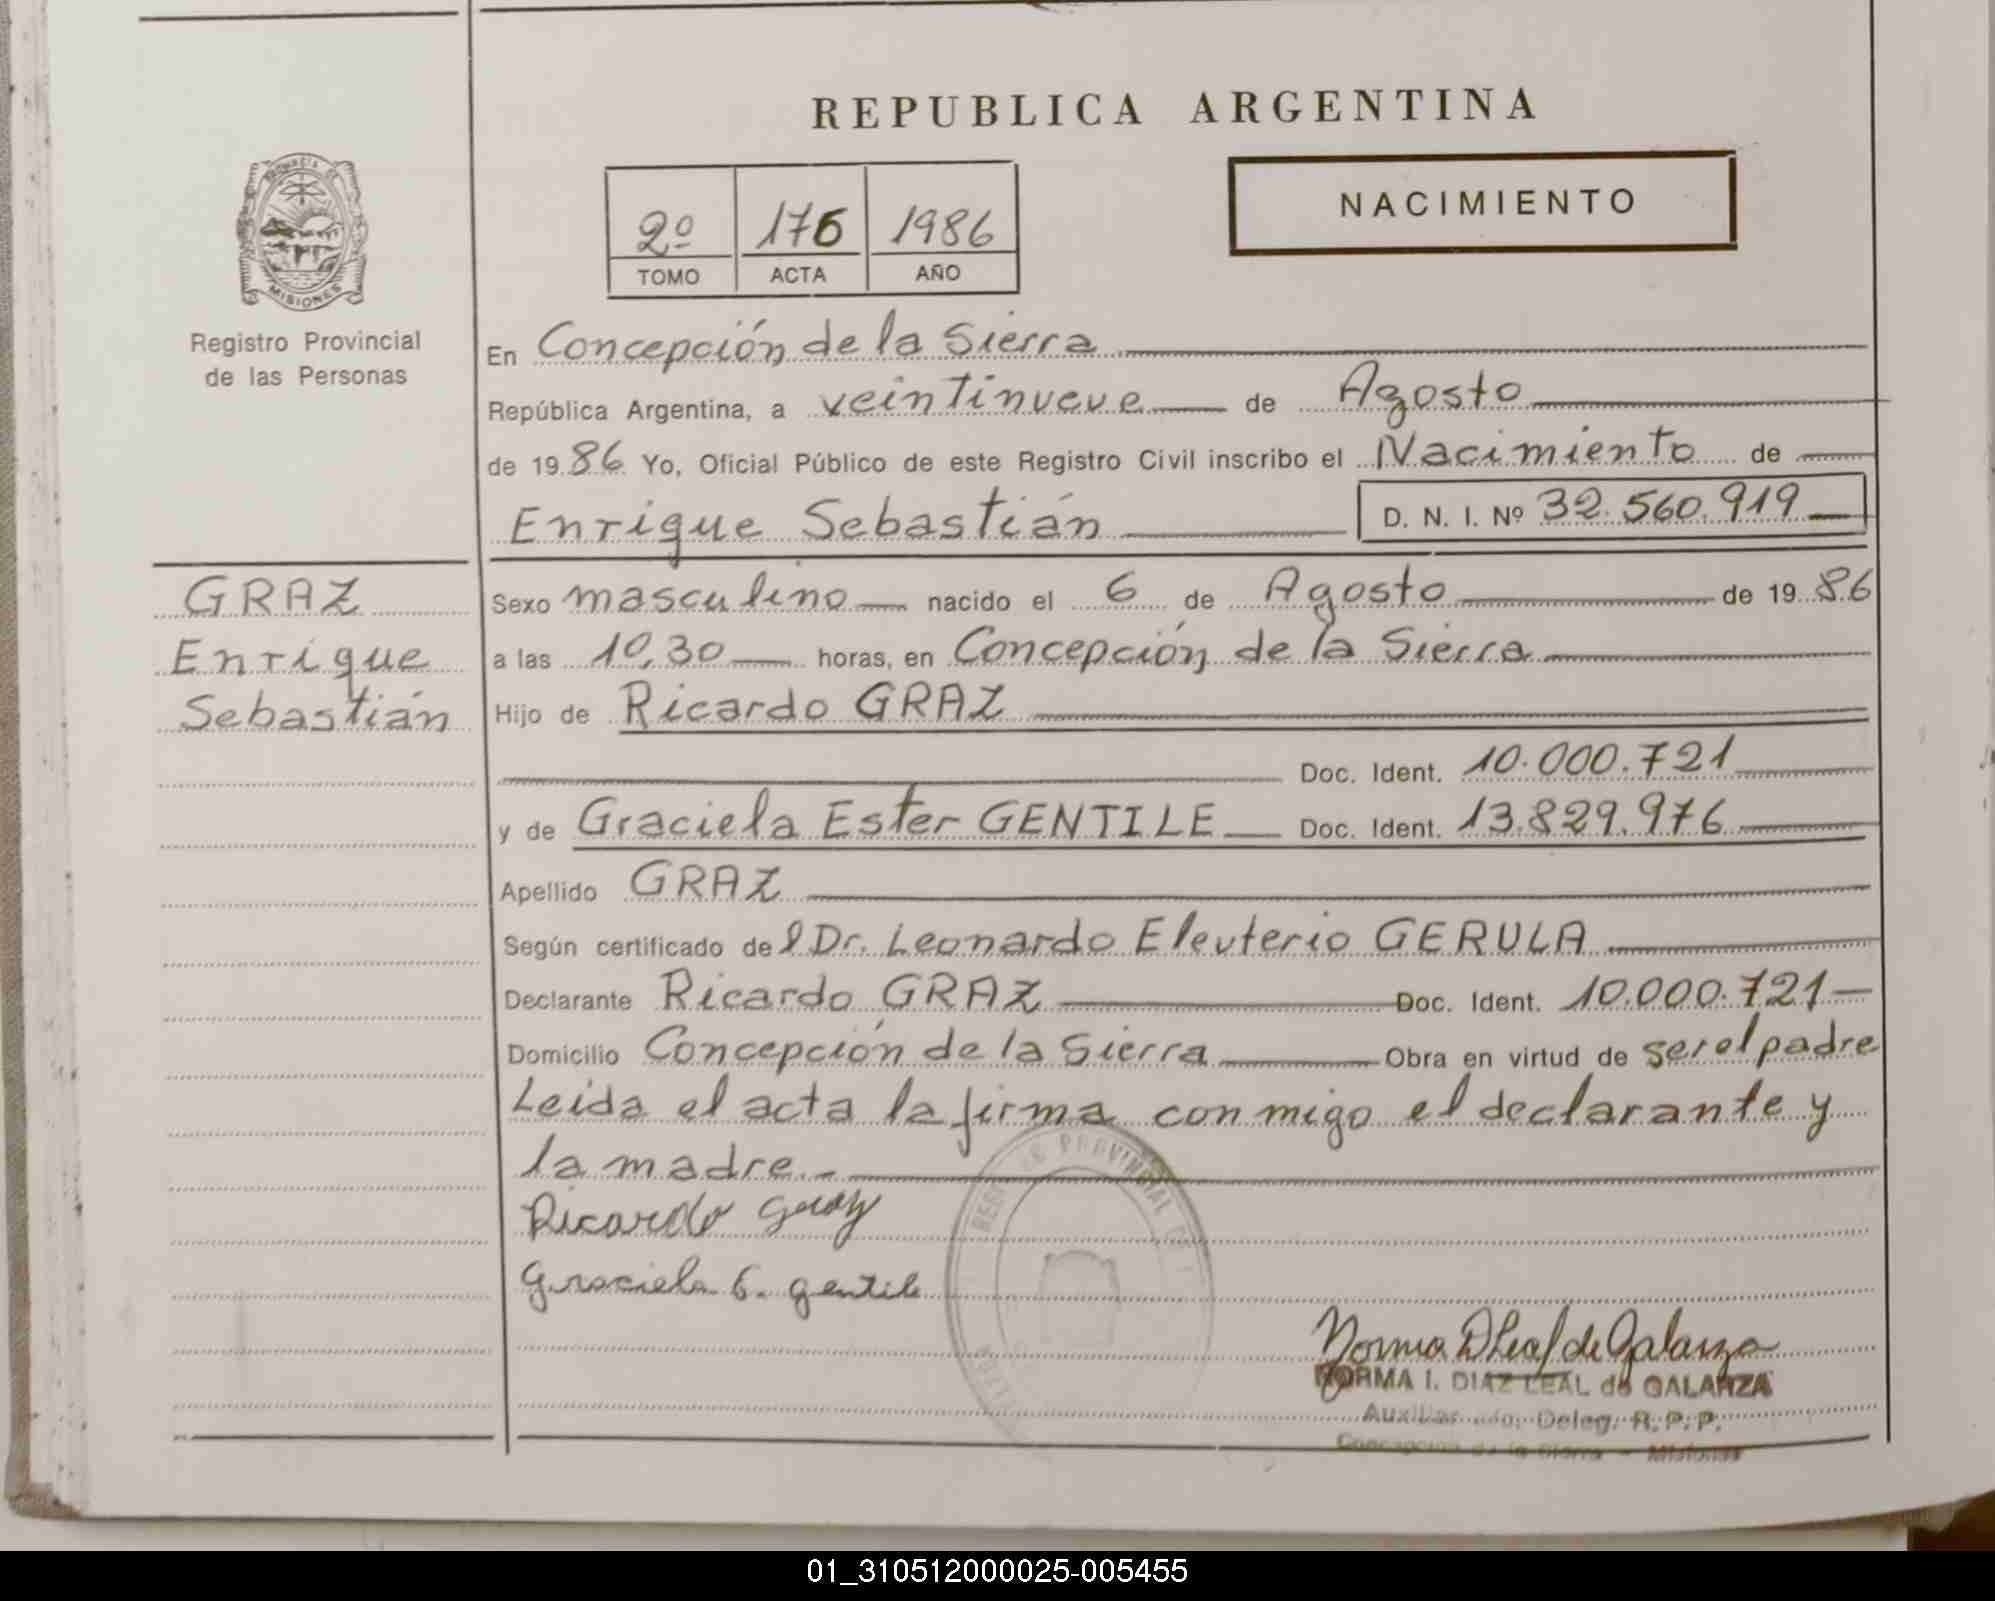 REPUBLICA ARGENTINA
NACIMIENTO
2º 176 1986
TOMO ACTA AÑO
PROVINCIA DE
MISIONES
Registro Provincial
de las Personas
En Concepción de la Sierra
República Argentina, a veintinueve de Agosto
de 1986 Yo, Oficial Público de este Registro Civil inscribo el Nacimiento de
Enrique Sebastián D. N. I. Nº 32.560.919
GRAZ
Enrique
Sebastián
Sexo masculino nacido el 6 de Agosto de 1986
a las 10,30 horas, en Concepción de la Sierra
Hijo de Ricardo GRAZ
Doc. Ident. 10.000.721
y de Graciela Ester GENTILE Doc. Ident. 13.829.976
Apellido GRAZ
Según certificado del Dr. Leonardo Eleuterio GERULA
Declarante Ricardo GRAZ Doc. Ident. 10.000.721
Domicilio Concepción de la Sierra Obra en virtud de ser el padre
Leida el acta la firma conmigo el declarante y
la madre.-
Ricardo Graz
Graciela E. Gentile
REGISTRO PROVINCIAL DE
Norma D Leal de Galarza
NORMA I. DIAZ LEAL de GALARZA
Auxiliar Deleg. R.P.P.
Concepcion de la Sierra - Misiones
01_310512000025-005455